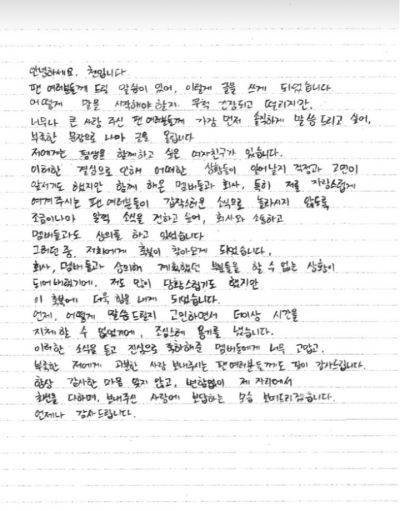 안녕하세요. 첸입니다
팬 여러분들께 드릴 말씀이 있어, 이렇게 글을 쓰게 되었습니다.
어떻게 말을 시작해야 할지 무척 긴장되고 떨리지만,
너무나 큰 사랑 주신 팬 여러분들께 가장 먼저 솔직하게 말씀드리고 싶어,
부족한 문장으로 나마 글을 올립니다
저에게는 평생을 함께하고 싶은 여자친구가 있습니다.
이러한 결심으로 인해 어떠한 상황들이 일어날지 걱정과 고민이
앞서기도 했지만 함께 해온 멤버들과 회사, 특히 저를 자랑스럽게
여겨주시는 팬 여러분들이 갑작스러운 소식으로 놀라시지 않도록
조금이나마 일찍 소식을 전하고 싶어, 회사와 소통하고
멤버들과도 상의를 하고 있었습니다
그러던 중, 저희에게 축복이 찾아오게 되었습니다.
회사, 멤버들과 상의해 계획했던 부분들을 할 수 없는 상황이
되어버렸기에, 저도 많이 당황스럽기도 했지만
이 축복에 더욱 힘을 내게 되었습니다.
언제, 어떻게 말씀드릴지 고민하면서 더이상 시간을
지체 할 수 없었기에, 조심스레 용기를 냈습니다.
이러한 소식을 듣고 진심으로 축하해준 멤버들에게 너무 고맙고,
부족한 저에게 과분한 사랑 보내주시는 팬 여러분들께도 깊이 감사드립니다.
항상 감사한 마음 잊지 않고, 변함없이 제 자리에서
최선을 다하며, 보내주신 사랑에 보답하는 모습 보여드리겠습니다.
언제나 감사드립니다.